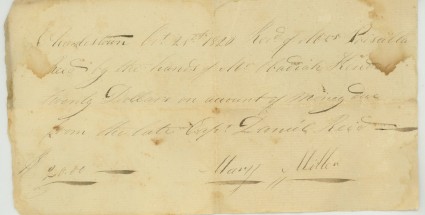 Charlestown Oct 25th 1824 Recd of Mrs
by the hands of Mr
twenty Dollars on account of money due
from the late Capt Daniel Reed
$20.00 Mary Miller